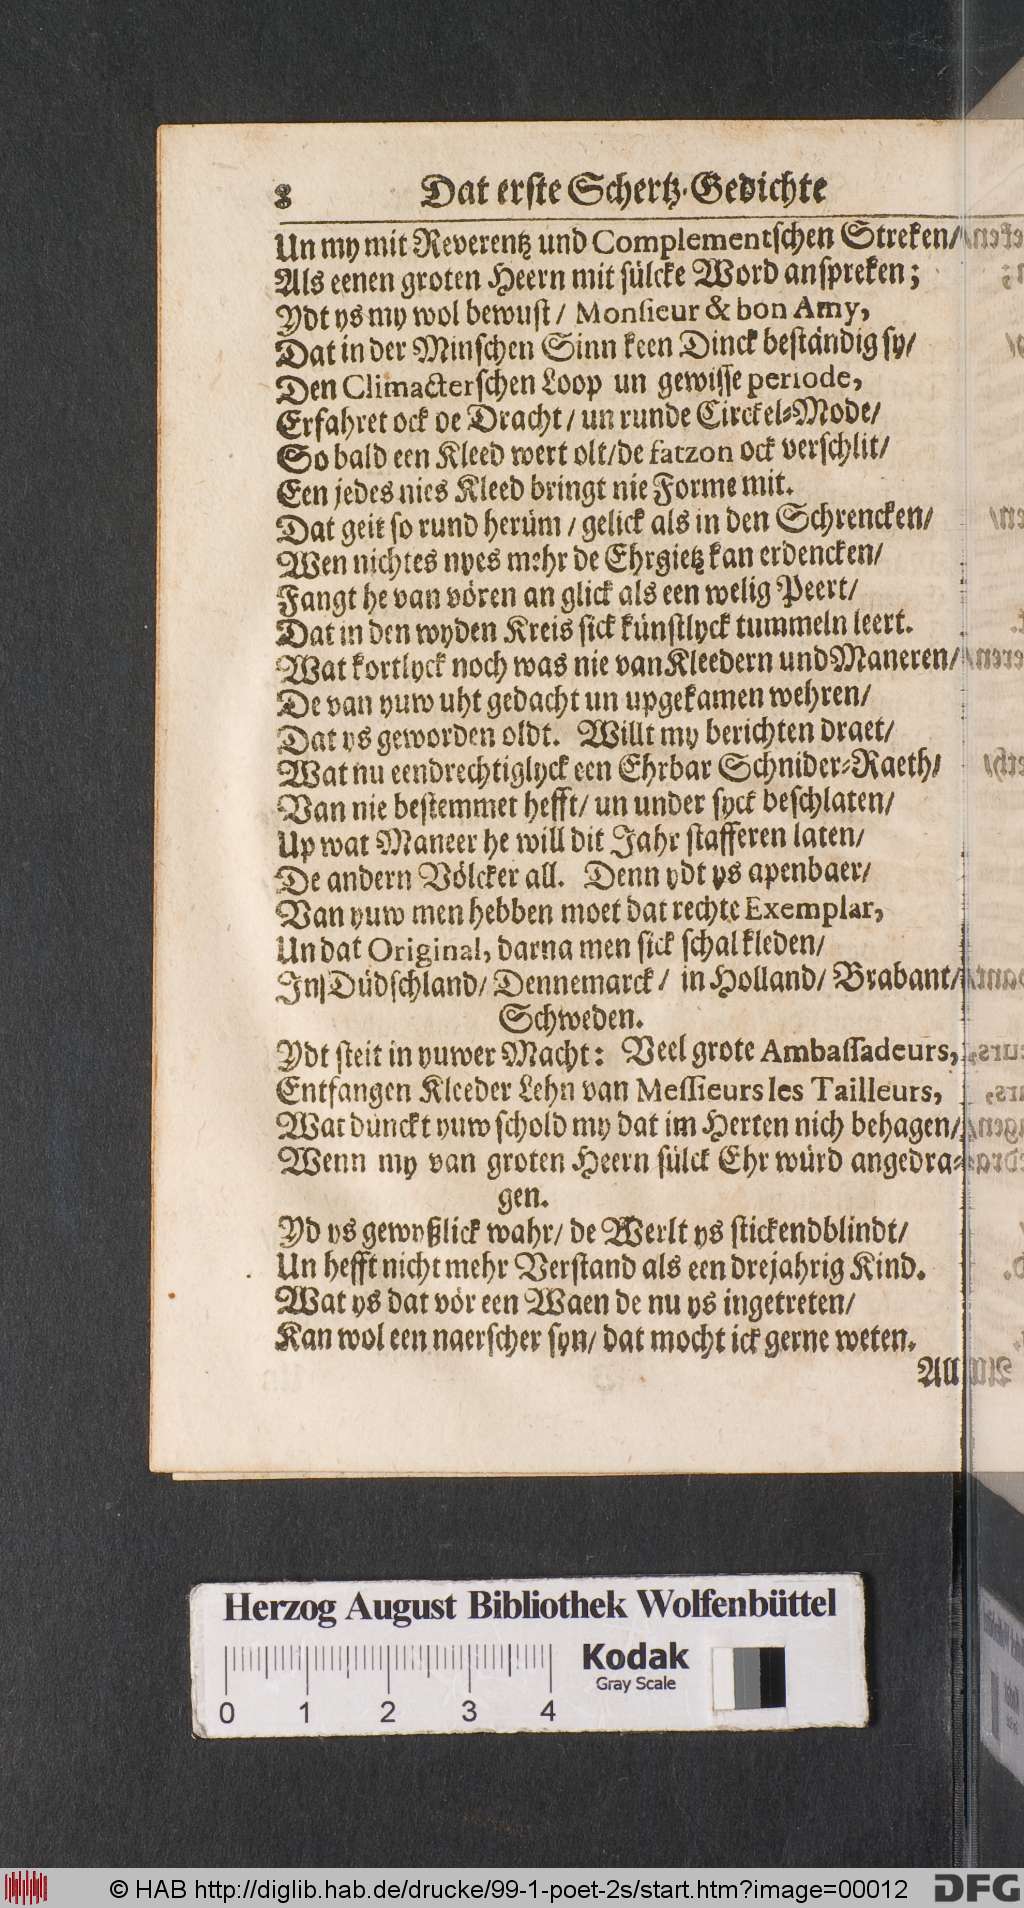 8 Dat erste Schertz-Gedichte
Un my mit Reverentz und Complementschen Streken/
Als eenen groten Heern mit sülcke Word anspreken;
Ydt ys my wol bewust/ Monsieur & bon Amy,
Dat in der Minschen Sinn keen Dinck beständig sy/
Den Climacterschen Loop un gewisse periode,
Erfahret ock de Dracht/ un runde Circkel-Mode/
So bald een Kleed wert olt/ de fatzon ock verschlit/
Een jedes nies Kleed bringt nie Forme mit.
Dat geit so rund herüm/ gelick als in den Schrencken/
Wen nichtes nyes mehr de Ehrgietz kan erdencken/
Fangt he van vören an glick als een welig Peert/
Dat in den wyden Kreis sick künstlyck tummeln leert.
Wat kortlyck noch was nie van Kleedern und Maneren/
De van yuw uht gedacht un upgekamen wehren/
Dat ys geworden oldt. Willt my berichten draet/
Wat nu eendrechtiglyck een Ehrbar Schnider-Raeth/
Van nie bestemmet hefft/ un under syck beschlaten/
Up wat Maneer he will dit Jahr stafferen laten/
De andern Völcker all. Denn ydt ys apenbaer/
Van yuw men hebben moet dat rechte Exemplar,
Un dat Original, darna men sick schal kleden/
In Düdschland/ Dennemarck/ in Holland/ Brabant/
Schweden.
Ydt steit in yuwer Macht: Veel grote Ambassadeurs,
Entfangen Kleeder Lehn van Messieurs les Tailleurs,
Wat dunckt yuw schold my dat im Herten nich behagen/
Wenn my van groten Heern sülck Ehr würd angedra-
gen.
Yd ys gewyßlick wahr/ de Werlt ys stickendblindt/
Un hefft nicht mehr Verstand als een drejahrig Kind.
Wat ys dat vör een Waen de nu ys ingetreten/
Kan wol een naerscher syn/ dat mocht ick gerne weten.
All
Herzog August Bibliothek Wolfenbüttel
Kodak
Gray Scale
0 1 2 3 4
© HAB http://diglib.hab.de/drucke/99-1-poet-2s/start.htm?image=00012
DFG